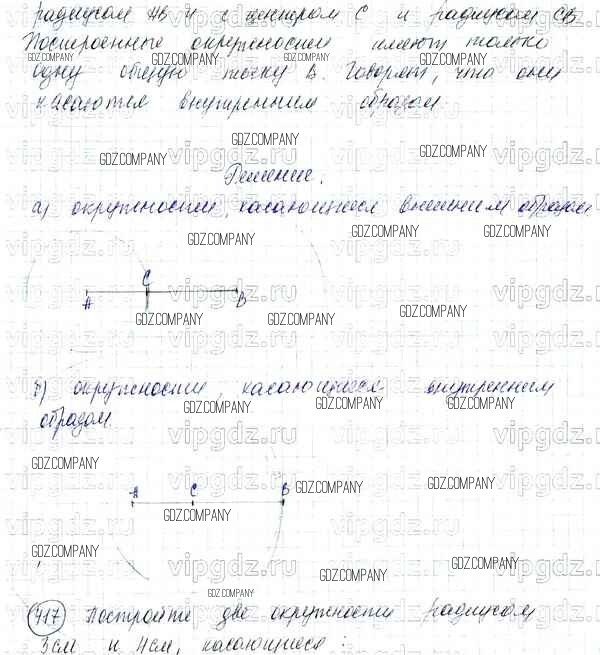 радиусом АВ и с центром С и радиусом СВ
Построенные окружности имеют только
одну общую точку В. Говорят, что они
касаются внутренним образом
Решение.
а) окружности, касающиеся внешним образом
С
А В
б) окружности, касающиеся внутренним
образом
А С В
717 Постройте две окружности радиусом
3см и 4см, касающиеся:
GDZ.COMPANY
vipgdz.ru